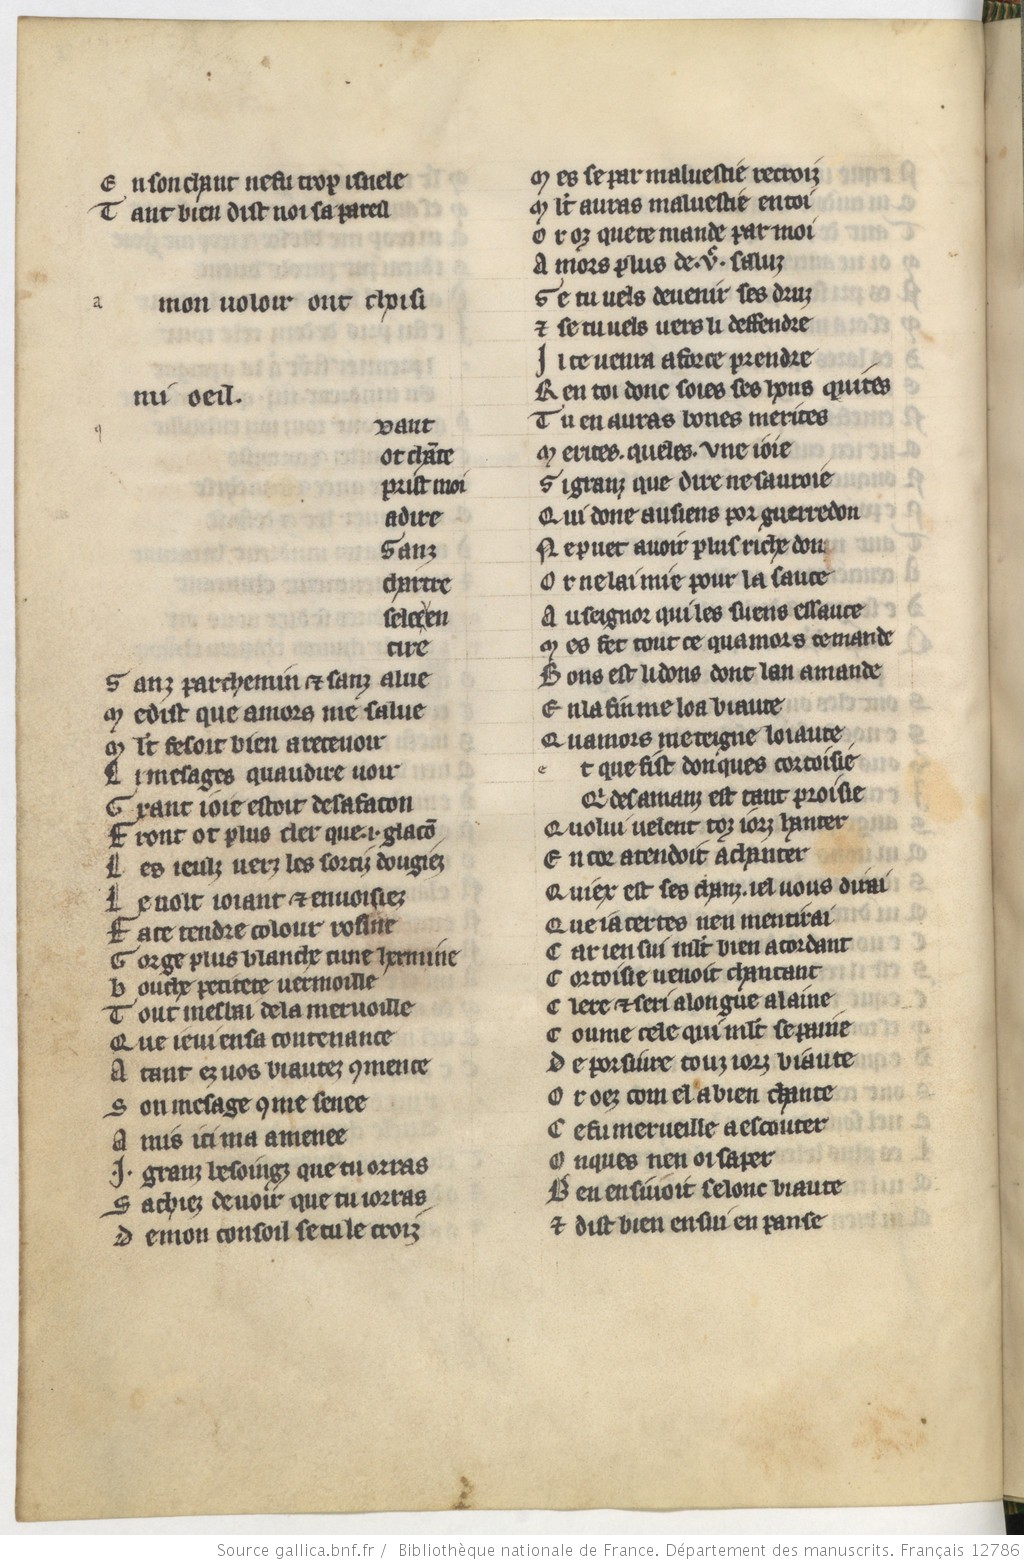 E n son chant ne fu trop isnele
T ant bien dist noi sa parest
a mon uoloir ont choisi
mi oeil.
q vant
ot chāte
prist moi
adire
Sanz
chartre
selceen
cire
S anz parchemin ⁊ sanz alue
M edist que amors me salue
M lt fesoit bien a receuoir
L i mesages quaudire uoir
G rant ioie estoit desa facon
F ront ot plus cler que .i. glacō
L es ieulz uerz les sorciz dougiez
L e uolt ioiant ⁊ enuoisiez
F ace tendre colour rosine
G orge plus blanche cune hermine
B ouche petitete uermoille
T out meslai dela meruoille
Q ue ie ui ensa contenance
A tant ez uos biautez 9mence
S on mesage 9me senee
A mis ici ma amenee
J. granz besoingz que tu orras
S achiez deuoir que tu iorras
D e mon consoil se tu le croiz
M es se par maluestié recroiz
M lt auras maluestié en toi
O r oz que te mande par moi
A mors plus de .v.c saluz
S e tu uels deuenir ses druz
⁊ se tu uels uers li deffendre
J l te uenra a force prendre
R en toi donc soies ses hons quites
T u en auras bones merites
M erites. queles. vne ioie
S i granz que dire ne sauroie
Q ui done as siens por guerredon
N e puet auoir plus riche don
O r ne lai mie pour la sauce
A u seignor qui les suens essauce
M es fet tout ce quamors te mande
B ons est li dons dont lan amande
E n la fin me loa biaute
Q uamors me teigne loiaute
e t que fist donques cortoisie
Q̃ des amanz est tant proisie
Q uolui uelent toz iorz hanter
E ncor atendoit a chanter
Q uiex est ses chanz. iel uous dirai
Q ue ia certes nen mentirai
C ar ien sui mlt bien acordant
C ortoisie uenoit chantant
C lere ⁊ seri a longue alaine
C oume cele qui mlt se paine
D e porsuire touz iorz biaute
O r oez com el a bien chante
C e fu merueille a escouter
O nques rien oi saper
B en ensiuoit selonc biaute
⁊ dist bien ensui en panse
Source gallica.bnf.fr / Bibliothèque nationale de France. Département des manuscrits. Français 12786